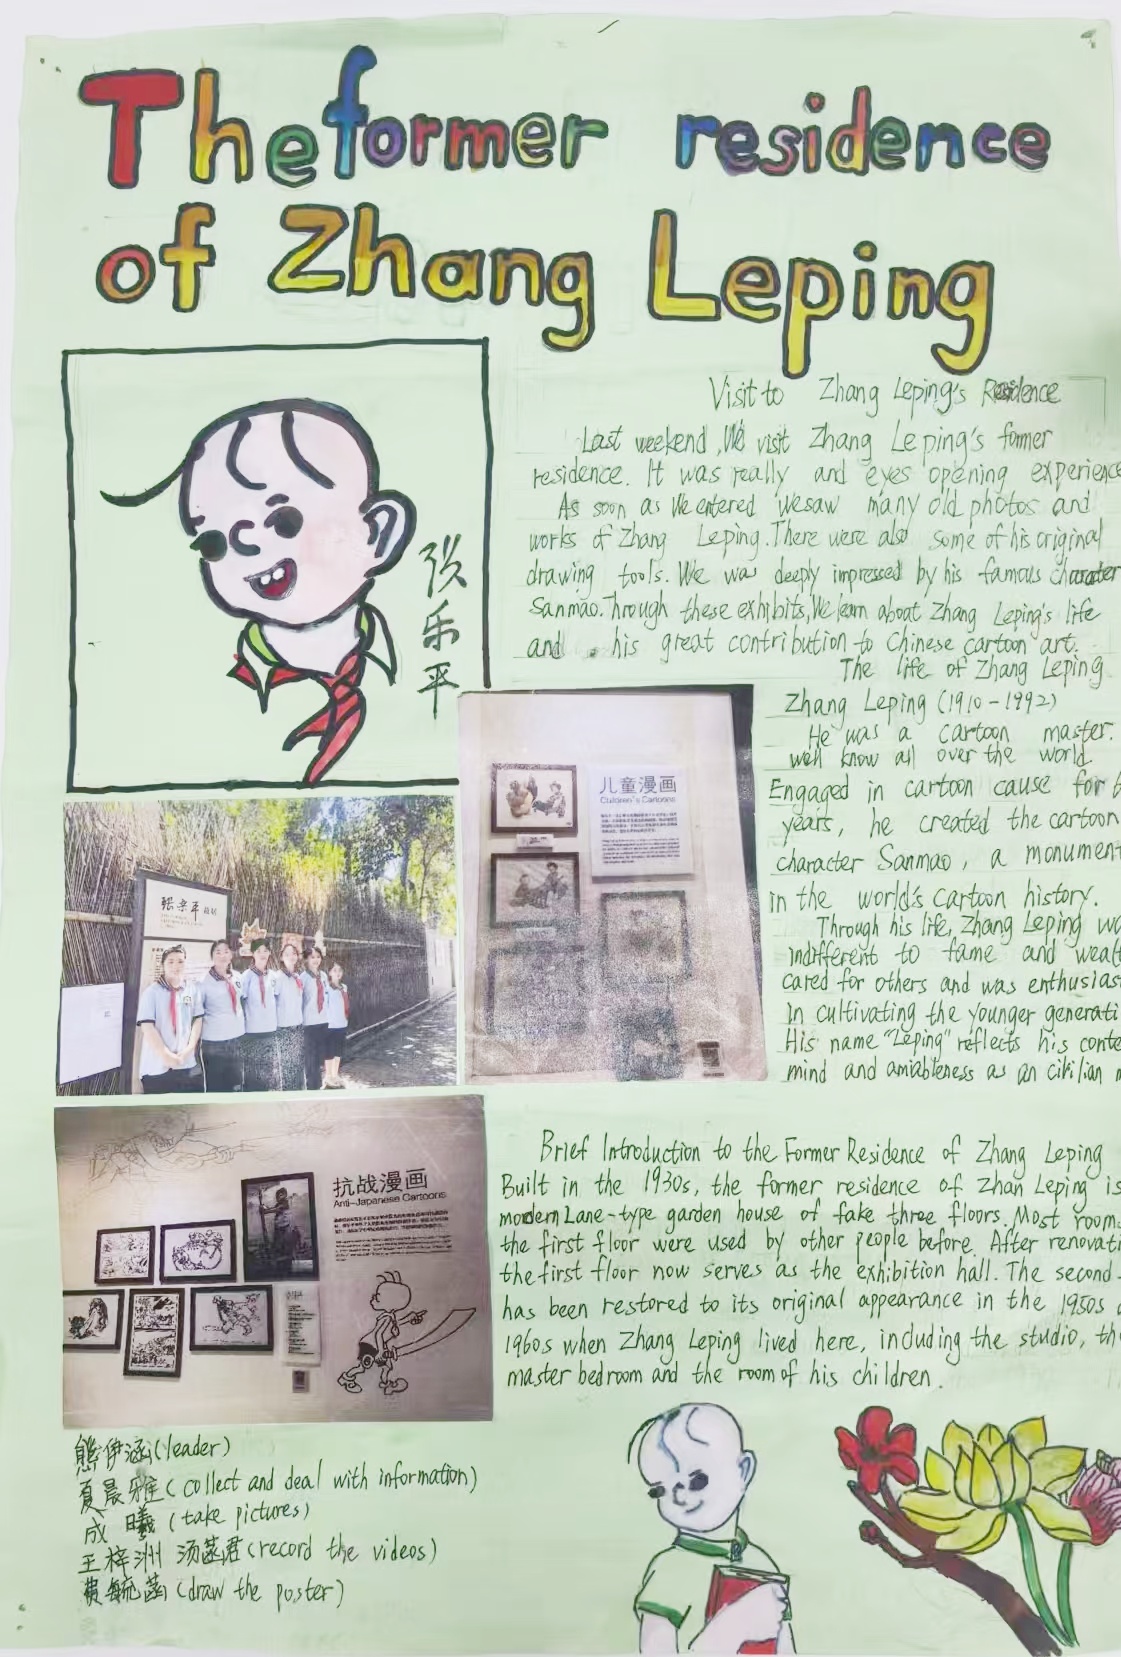 The former residence
of Zhang Leping
张乐平
Visit to Zhang Leping's Residence
Last weekend, We visit Zhang Leping's former
residence. It was really and eyes opening experience
As soon as We entered We saw many old photos and
works of Zhang Leping. There were also some of his original
drawing tools. We was deeply impressed by his famous character
Sanmao. Through these exhibits, We learn about Zhang Leping's life
and his great contribution to Chinese cartoon art.
The life of Zhang Leping
Zhang Leping (1910-1992)
He was a cartoon master.
well know all over the world
Engaged in cartoon cause for 6
years, he created the cartoon
character Sanmao, a monument
in the world's cartoon history.
Through his life, Zhang Leping wa
indifferent to fame and wealt
cared for others and was enthusias
In cultivating the younger generati
His name "Leping" reflects his conte
mind and amiableness as an civilian m
儿童漫画
Children's Cartoons
张乐平故居
抗战漫画
Anti-Japanese Cartoons
Brief Introduction to the Former Residence of Zhang Leping
Built in the 1930s, the former residence of Zhan Leping is
modern Lane-type garden house of fake three floors. Most room
the first floor were used by other people before. After renovati
the first floor now serves as the exhibition hall. The second-
has been restored to its original appearance in the 1950s a
1960s when Zhang Leping lived here, including the studio, the
master bedroom and the room of his children.
熊伊涵(leader)
夏晨雅(collect and deal with information)
成曦(take pictures)
王梓洲 汤菡君(record the videos)
费毓菡(draw the poster)